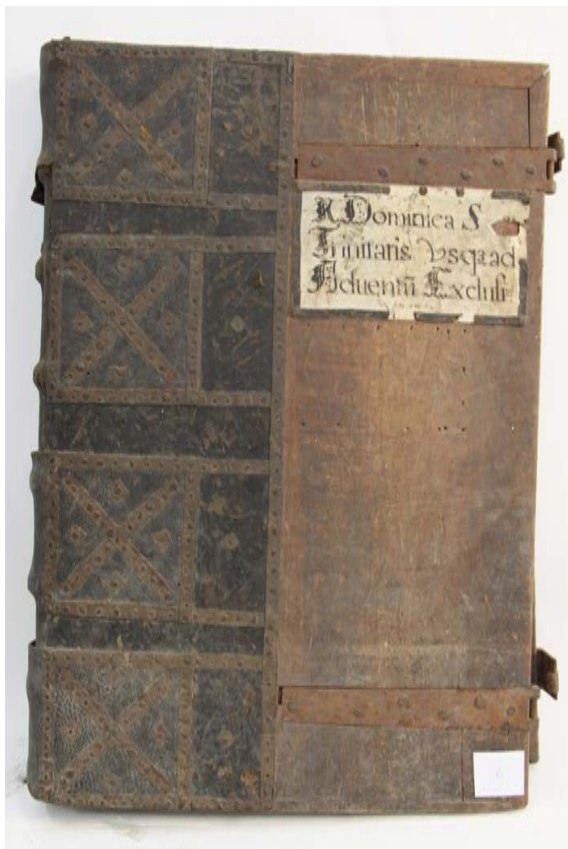 A Dominica S
Trinitatis Vsqꝫ ad
Aduentū Exclusi